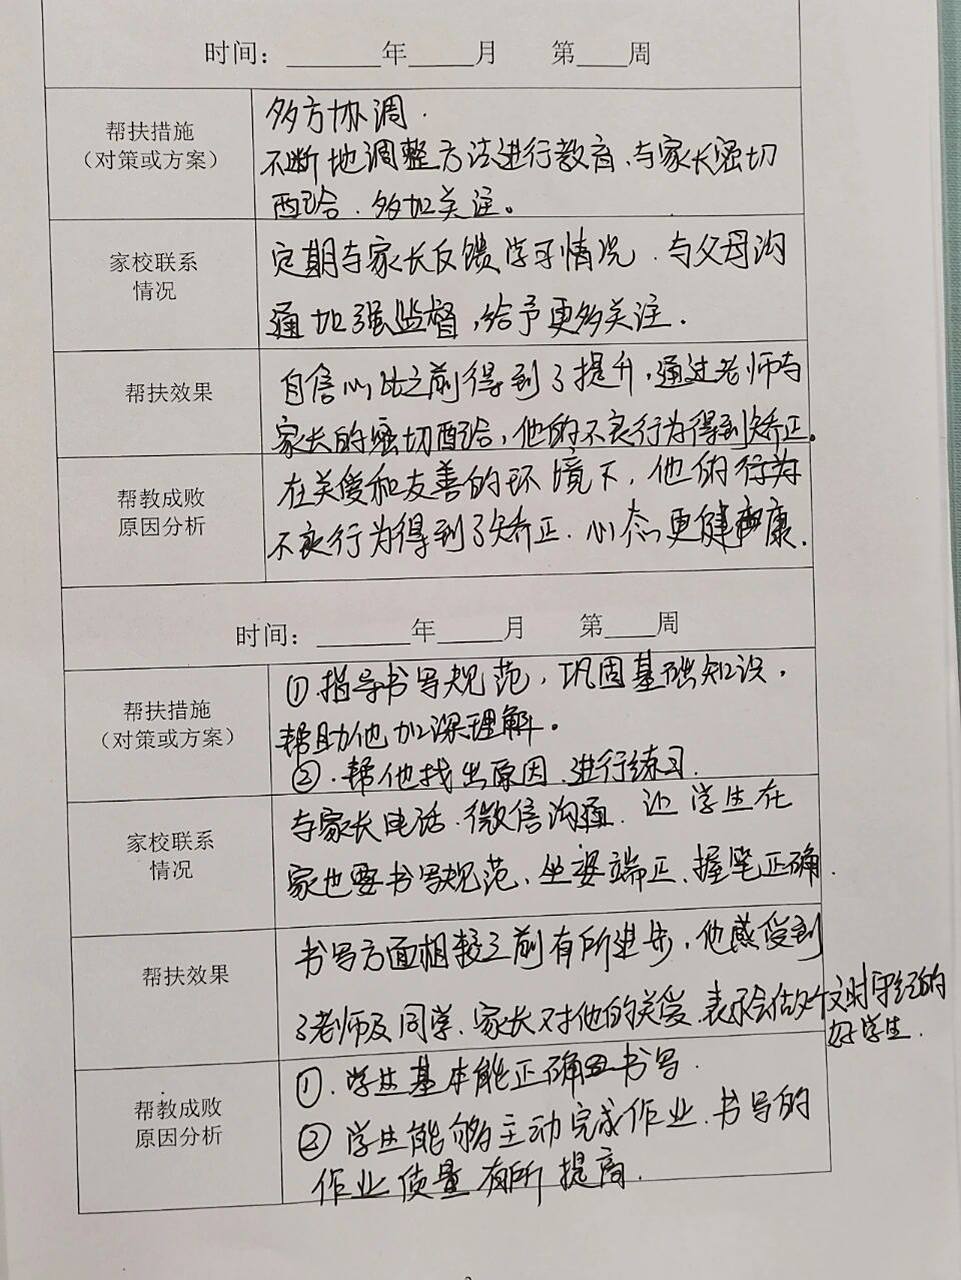 时间：______年____月 第___周
帮扶措施
（对策或方案）
多方协调.
不断地调整方法进行教育、与家长密切
配合、多加关注。
家校联系
情况
定期与家长反馈学习情况、与父母沟
通加强监督，给予更多关注.
帮扶效果
自信心比之前得到了提升，通过老师与
家长的密切配合，他的不良行为得到矫正。
帮教成败
原因分析
在关爱和友善的环境下，他的行为
不良行为得到了矫正、心态更健康.
时间：______年____月 第___周
帮扶措施
（对策或方案）
①.指导书写规范，巩固基础知识，
帮助他加深理解。
②.帮他找出原因、进行练习.
家校联系
情况
与家长电话、微信沟通、让学生在
家也要书写规范、坐姿端正、握笔正确.
帮扶效果
书写方面相较之前有所进步，他感受到
了老师及同学、家长对他的关爱、表示会做个文明守纪的
好学生.
帮教成败
原因分析
①.学生基本能正确书写.
②学生能够主动完成作业、书写的
作业质量有所提高.